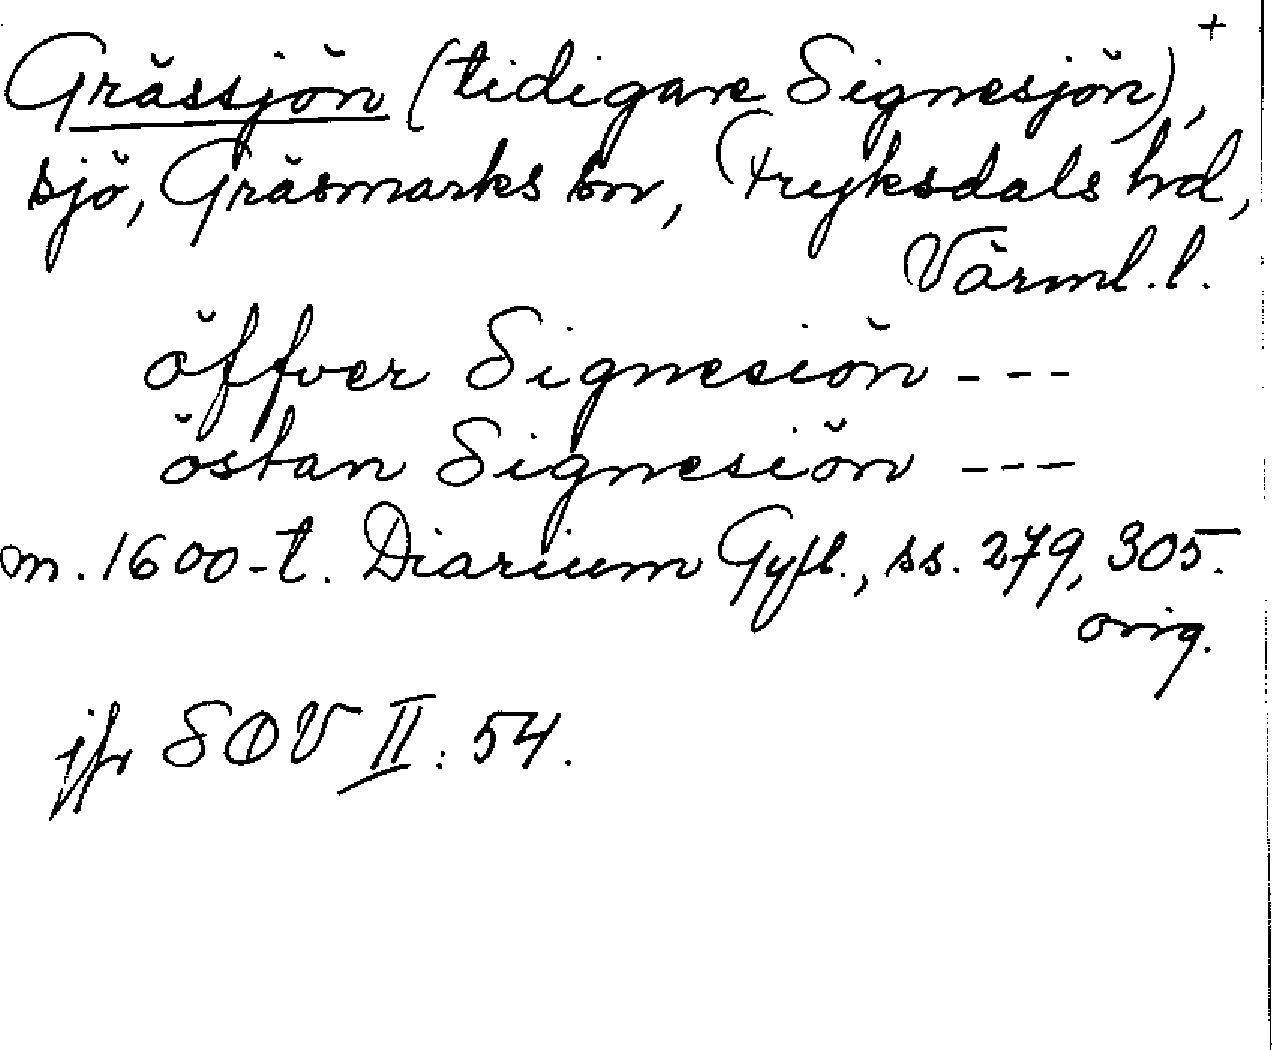 +
Grässjön (tidigare Signesjön),
sjö, Gräsmarks sn, Fryksdals hd,
Värml. l.
öffver Signesiön ---
östan Signesiön ---
m. 1600-t. Diarium Gyll., ss. 279, 305.
orig.
jfr SOV II: 54.